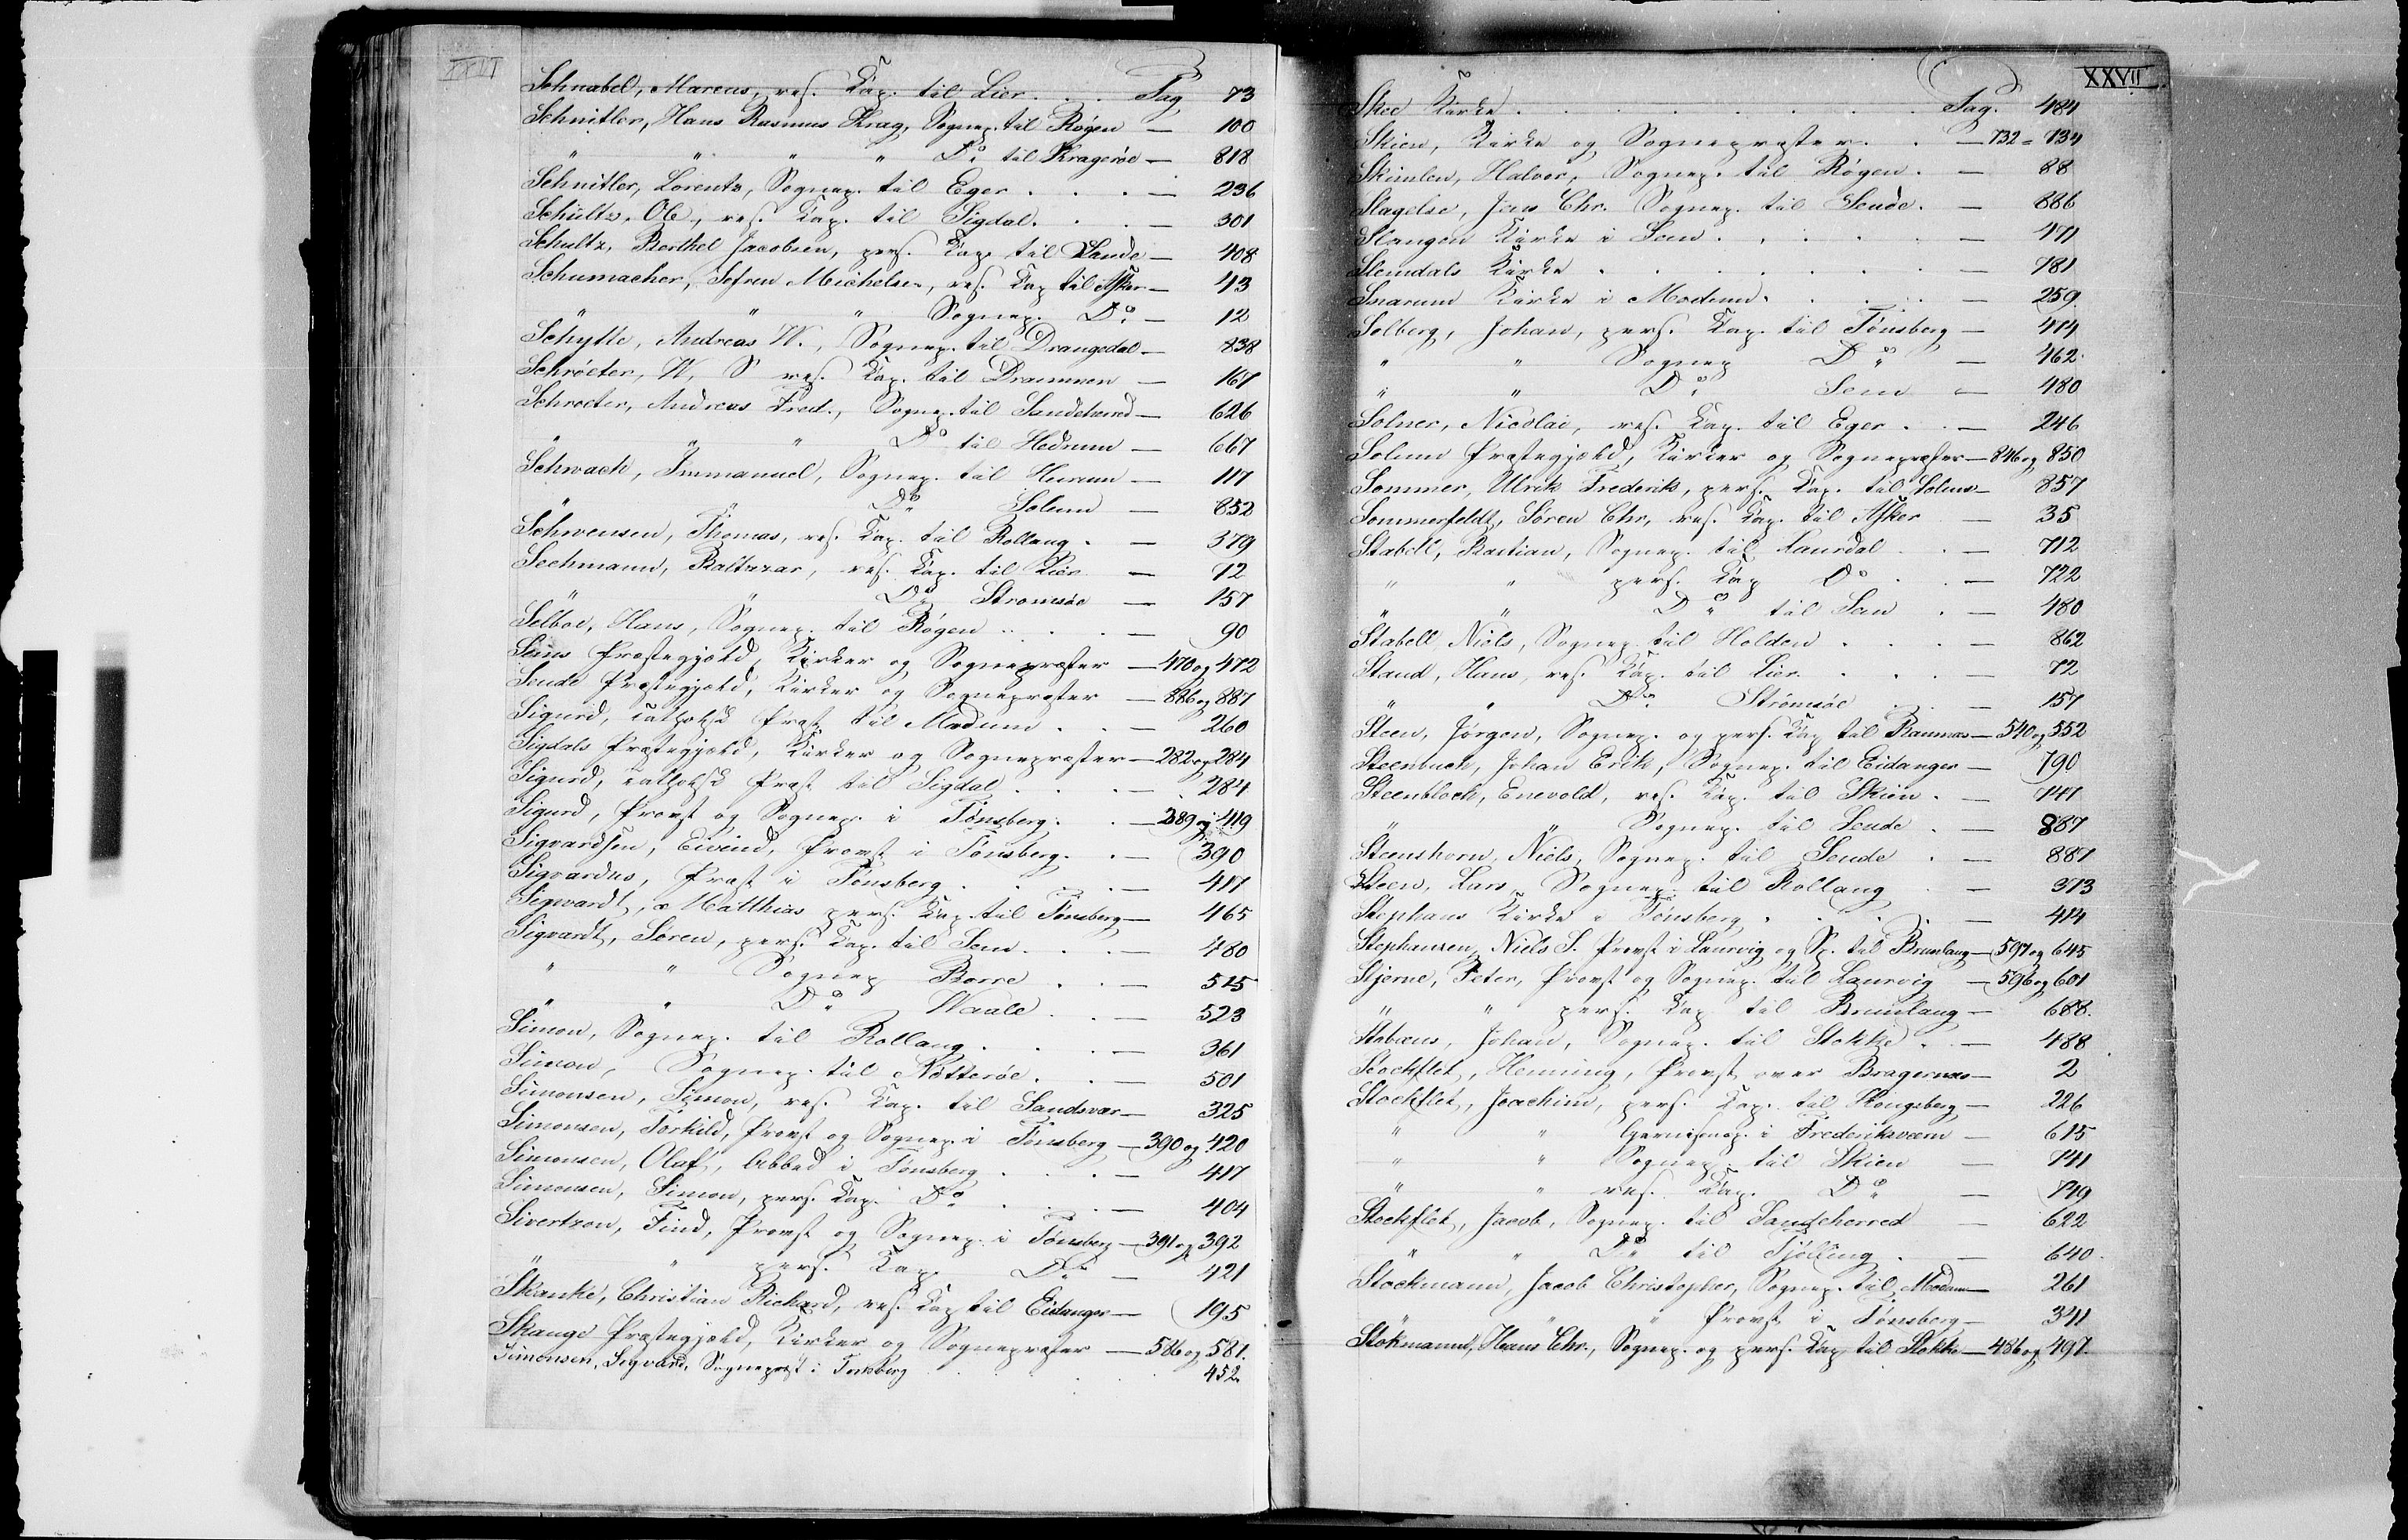 XXVI
Schnabel, Marcus, res. Cap. til Lier . . . Pag. 73
Schnitler, Hans Rasmus Krag, Sognep. til Røgen — 100
" " " " Do til Kragerøe — 818
Schnitler, Lorentz, Sognep. til Eger . . . — 236
Schültz, Ole, res. Cap. til Sigdal . . — 301
Schultz, Berthel Jacobsen, pers. Cap. til Sande — 408
Schumacher, Sefren Michelsen, res. Cap til Asker — 43
" " " Sognep. Do — 12
Schytte, Andreas W., Sognep. til Drangedal — 838
Schröeter, W. S res. Cap. til Drammen — 167
Schroeter, Andreas Fred., Sognep. til Sandeherred — 626
" " " Do til Hedrum — 667
Schwach, Immanuel, Sognep. til Hurum — 117
" " Do Solum — 852
Schwensen, Thomas, res. Cap. til Rollaug . — 379
Sechmann, Baltzzar, res. Cap. til Lier — 72
" " Do Stromsøe — 157
Selboe, Hans, Sognep. til Røgen . . . — 90
Sems Præstegjeld, Kirker og Sognepræster — 470 og 472
Seude Præstegjeld, Kirker og Sognepræster — 886 og 887
Sigurd, catholsk Præst til Modum . . — 260
Sigdals Præstegjeld, Kirker og Sognepræster — 282 og 284
Sigurd, catholsk Præst til Sigdal . . . — 284
Sigurd, Provst og Sognep. i Tønsberg . . — 389 og 419
Sigvardsen, Eivind, Provst i Tønsberg . . — 390
Sigvardus, Præst i Tønsberg . . . — 417
Sigwardt, Matthias pers. Cap. til Tønsberg — 465
Sigvardt, Søren, pers. Cap. til Sem . . — 480
" " Sognep Borre . . — 515
" " Do Waale . . — 523
Simon, Sognep. til Rollaug . . . — 361
Simon, Sognep. til Nøtterøe . . — 501
Simonsen, Simon, res. Cap. til Sandsvær — 325
Simonsen, Torkild, Provst og Sognep. i Tønsberg — 390 og 420
Simonsen, Olaf, Abbed i Tønsberg . . . — 417
Simonsen, Simon, pers. Cap. Do . . . — 404
Sivertzon, Find, Provst og Sognep. i Tønsberg — 391 og 392
" " pers. Cap. Do — 421
Skanke, Christian Richard, res. Cap til Eidanger — 195
Skauge Præstegjeld, Kirker og Sognepræster — 586 og 587.
Simonsen, Sigvard, Sognepræst i Tønsberg . . . 452.
XXVII
Skee Kirke . . . . . . . Pag. 484
Skien, Kirke og Sognepræster . . — 732 = 734
Skimlen, Halvor, Sognep. til Røgen . — 88
Slagelse, Jens Chr. Sognep. til Seude . — 886
Slangen Kirke i Sem . . . . . — 471
Slemdals Kirke . . . . . . . — 781
Snarum Kirke i Modum . . . . — 259.
Solberg, Johan, pers. Cap. til Tønsberg — 474
" " Sognep Do — 462
" " Do Sem — 480
Solner, Nicolai, res. Cap. til Eger . . — 246
Solum Præstegjeld, Kirker og Sognepræster — 846 og 850
Sommer, Ulrik Frederik, pers. Cap. til Solum — 857
Sommerfeldt, Søren Chr, res. Cap. til Asker — 35
Stabell, Bastian, Sognep. til Laurdal . . — 712
" " pers. Cap Do . . — 722
" " Do til Sem . — 480
Stabell, Niels, Sognep. til Holden . . . — 862
Staud, Hans, res. Cap. til Lier . . . — 72
" " Do Strømsøe . — 157
Steen, Jørgen, Sognep. og pers. Cap til Ramnes — 540 og 552
Steenbuch, Johan Erik, Sognep. til Eidanger — 790
Steenbloch, Enevold, res. Cap. til Skien . — 747
" " Sognep. til Seude . — 887
Steenshorn, Niels, Sognep. til Seude . — 887
Steen, Lars, Sognep. til Rollaug . — 373
Stephans Kirke i Tønsberg . . . . — 414
Stephansen, Niels S. Provst i Laurvig og Sp. til Brunlaug — 597 og 645
Stjerne, Peter, Provst og Sognep. til Laurvig — 596 og 601
" " pers. Cap til Brunlaug — 688.
Stobæus, Johan, Sognep. til Stokke . . — 488
Stockflet, Henning, Provst over Bragernæs — 2
Stockflet, Joachim, pers. Cap. til Kongsberg — 226
" " Garnisonsp. i Frederiksværn — 615
" " Sognep. til Skien — 741
" " res. Cap. Do — 749
Stockflet, Jacob, Sognep. til Sandeherred — 622
" " Do til Tjølling . — 640.
Stockmann, Jacob Christopher, Sognep. til Modum — 261
" " " Provst i Tønsberg — 341
Stokmann, Hans Chr., Sognep. og pers. Cap til Stokke — 486 og 497.